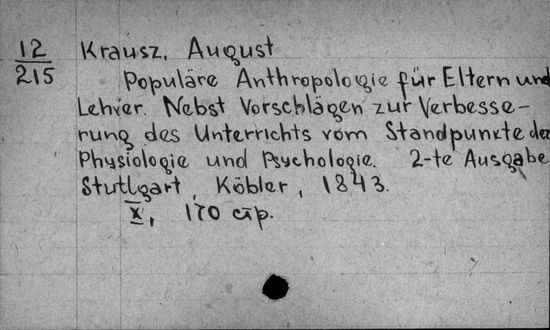 12
215
Krausz, August
Populäre Anthropologie für Eltern und
Lehrer. Nebst Vorschlägen zur Verbesse-
rung des Unterrichts vom Standpunkte der
Physiologie und Psychologie. 2-te Ausgabe
Stuttgart, Köbler, 1843.
X, 170 стр.